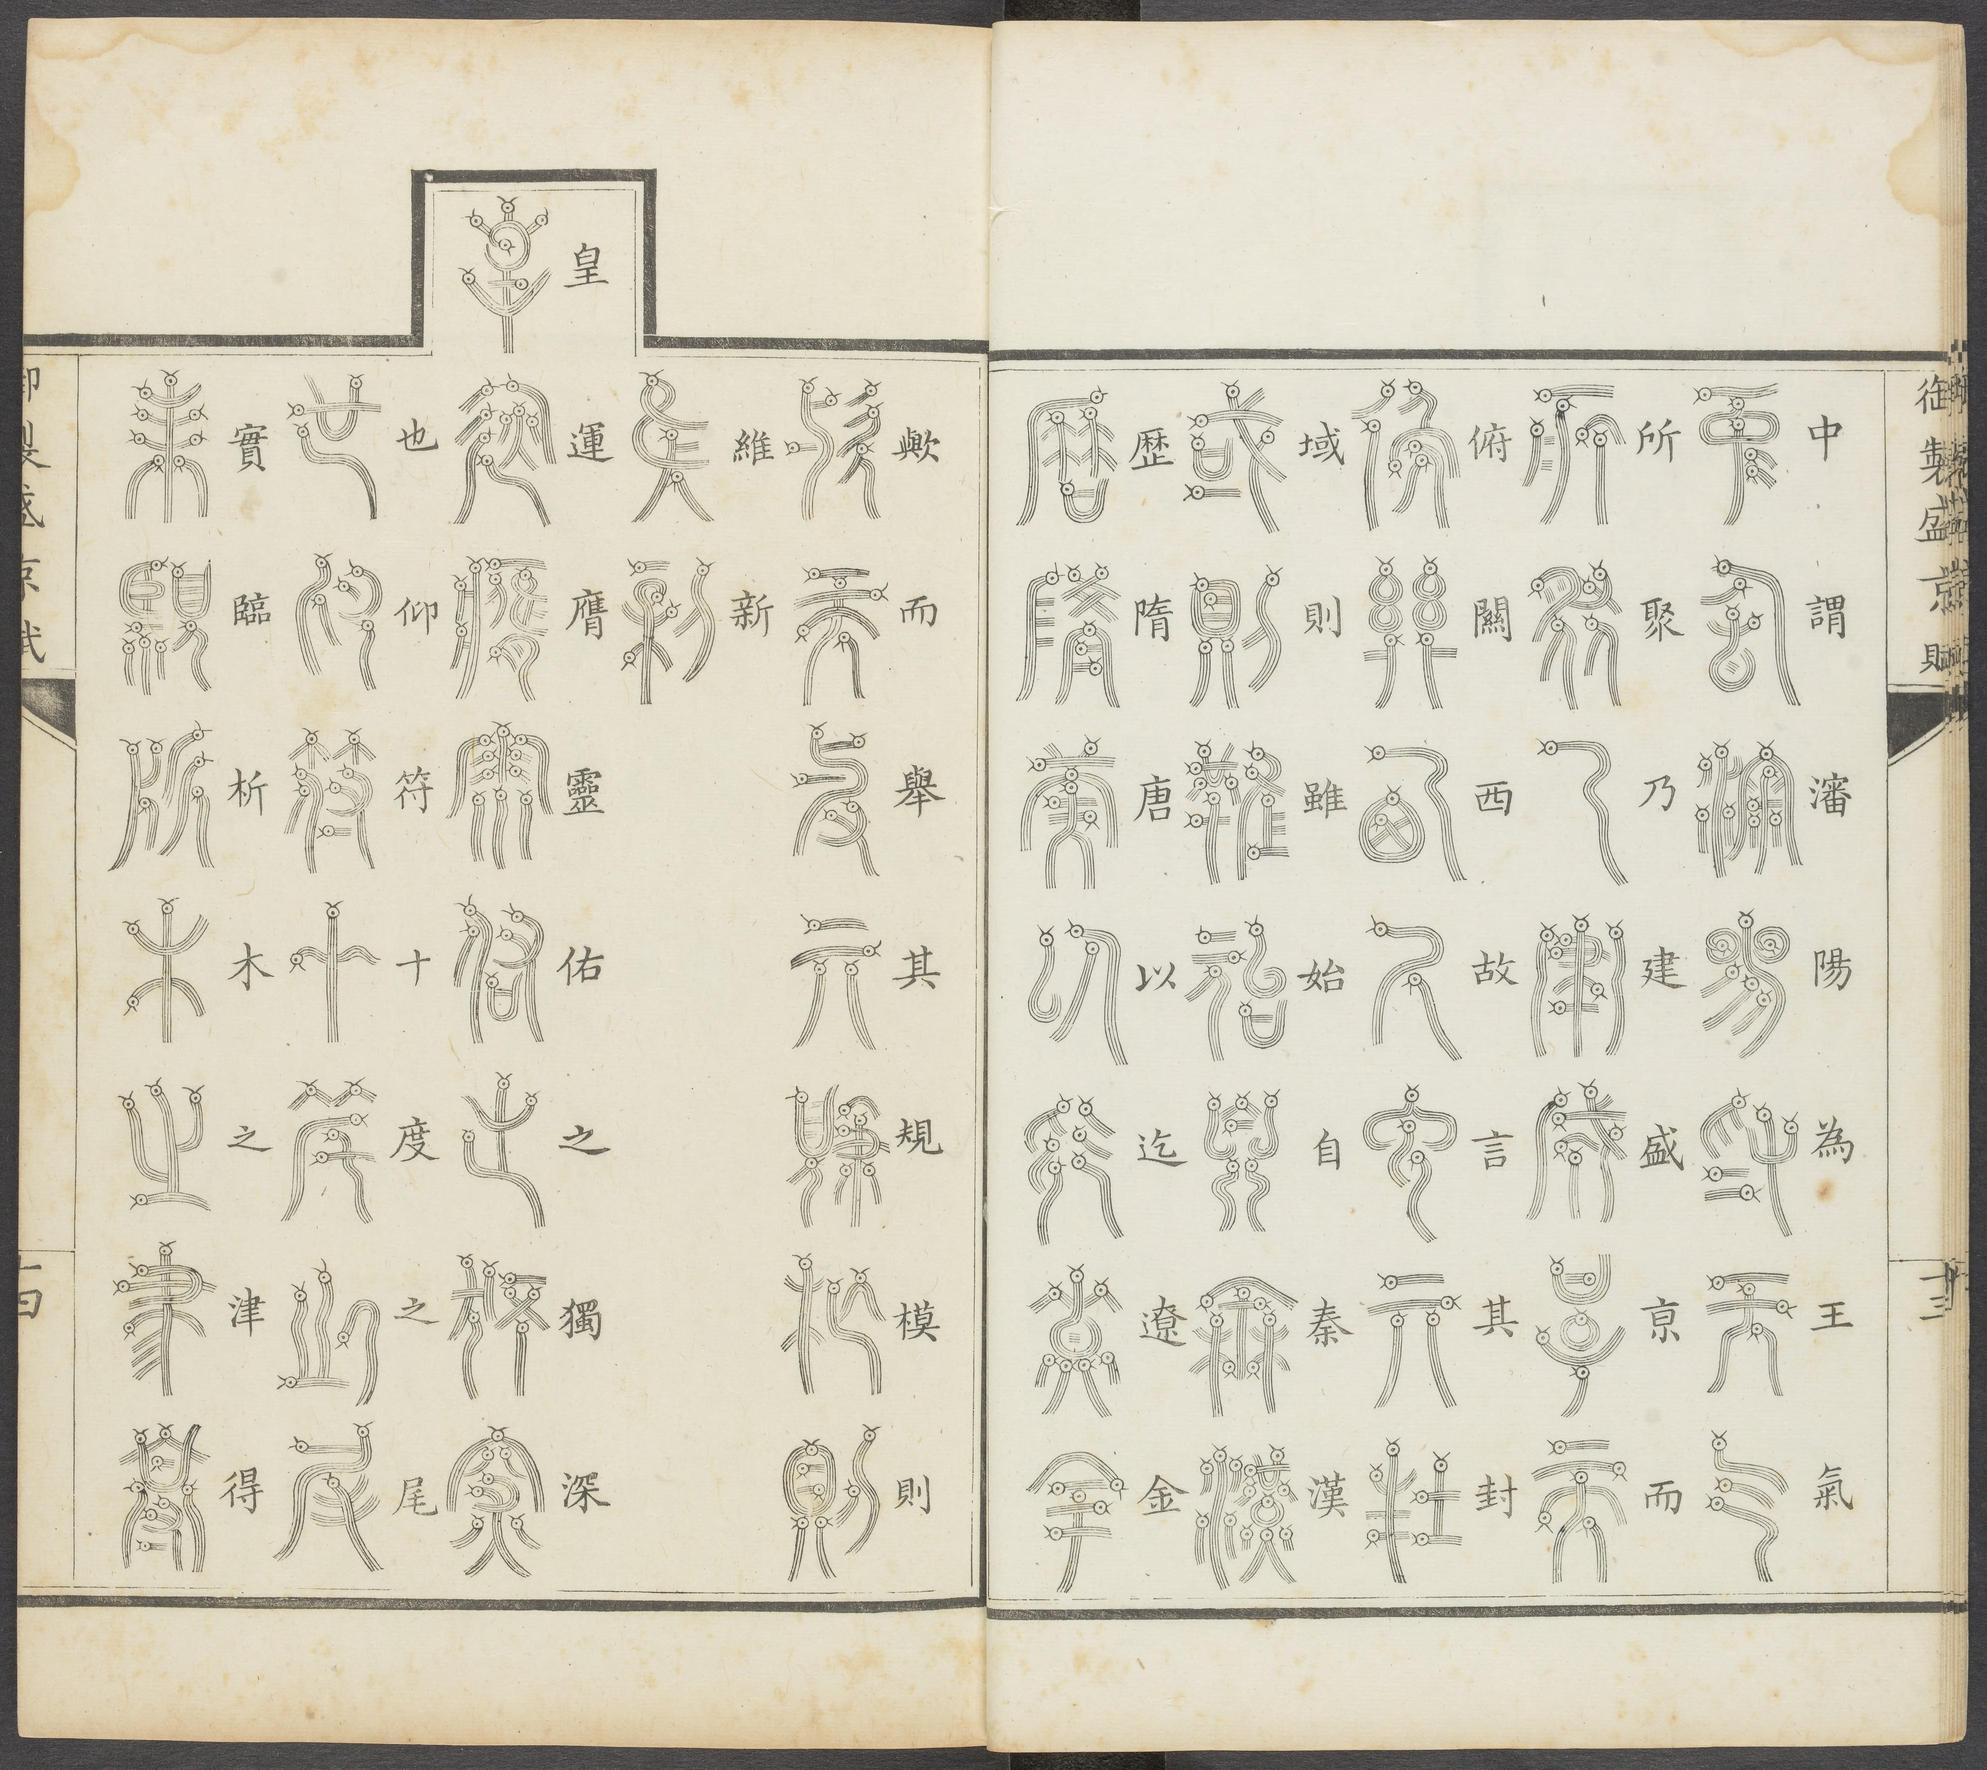 御製盛京賦
十三
中謂瀋陽為王氣
所聚乃建盛京而
俯關西故言其封
域則雖始自秦漢
歷隋唐以迄遼金
歟而舉其規模則
維新
皇
運膺靈佑之獨深
也仰符十度之尾
實臨析木之津得
御製盛京賦
十四